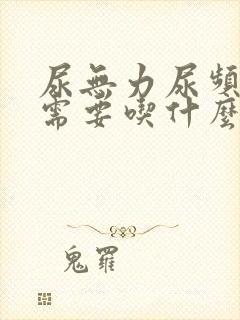 尿無力尿頻
需要喫什麼
鬼羅